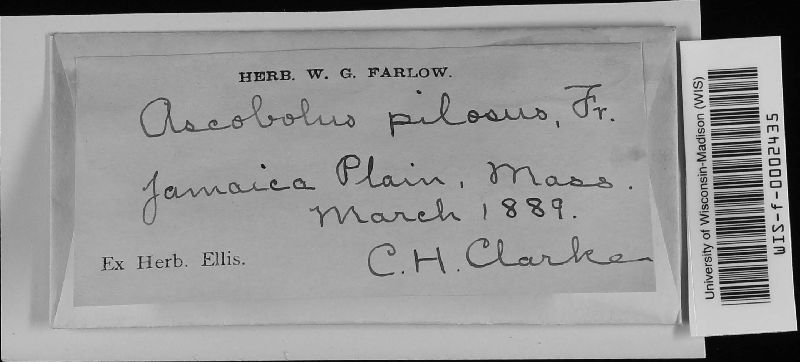 HERB. W. G. FARLOW.
Ascobolus pilosus, Fr.
Jamaica Plain, Mass.
March 1889.
Ex Herb. Ellis.
C. H. Clarke
University of Wisconsin-Madison (WIS)
WIS-f-0002435